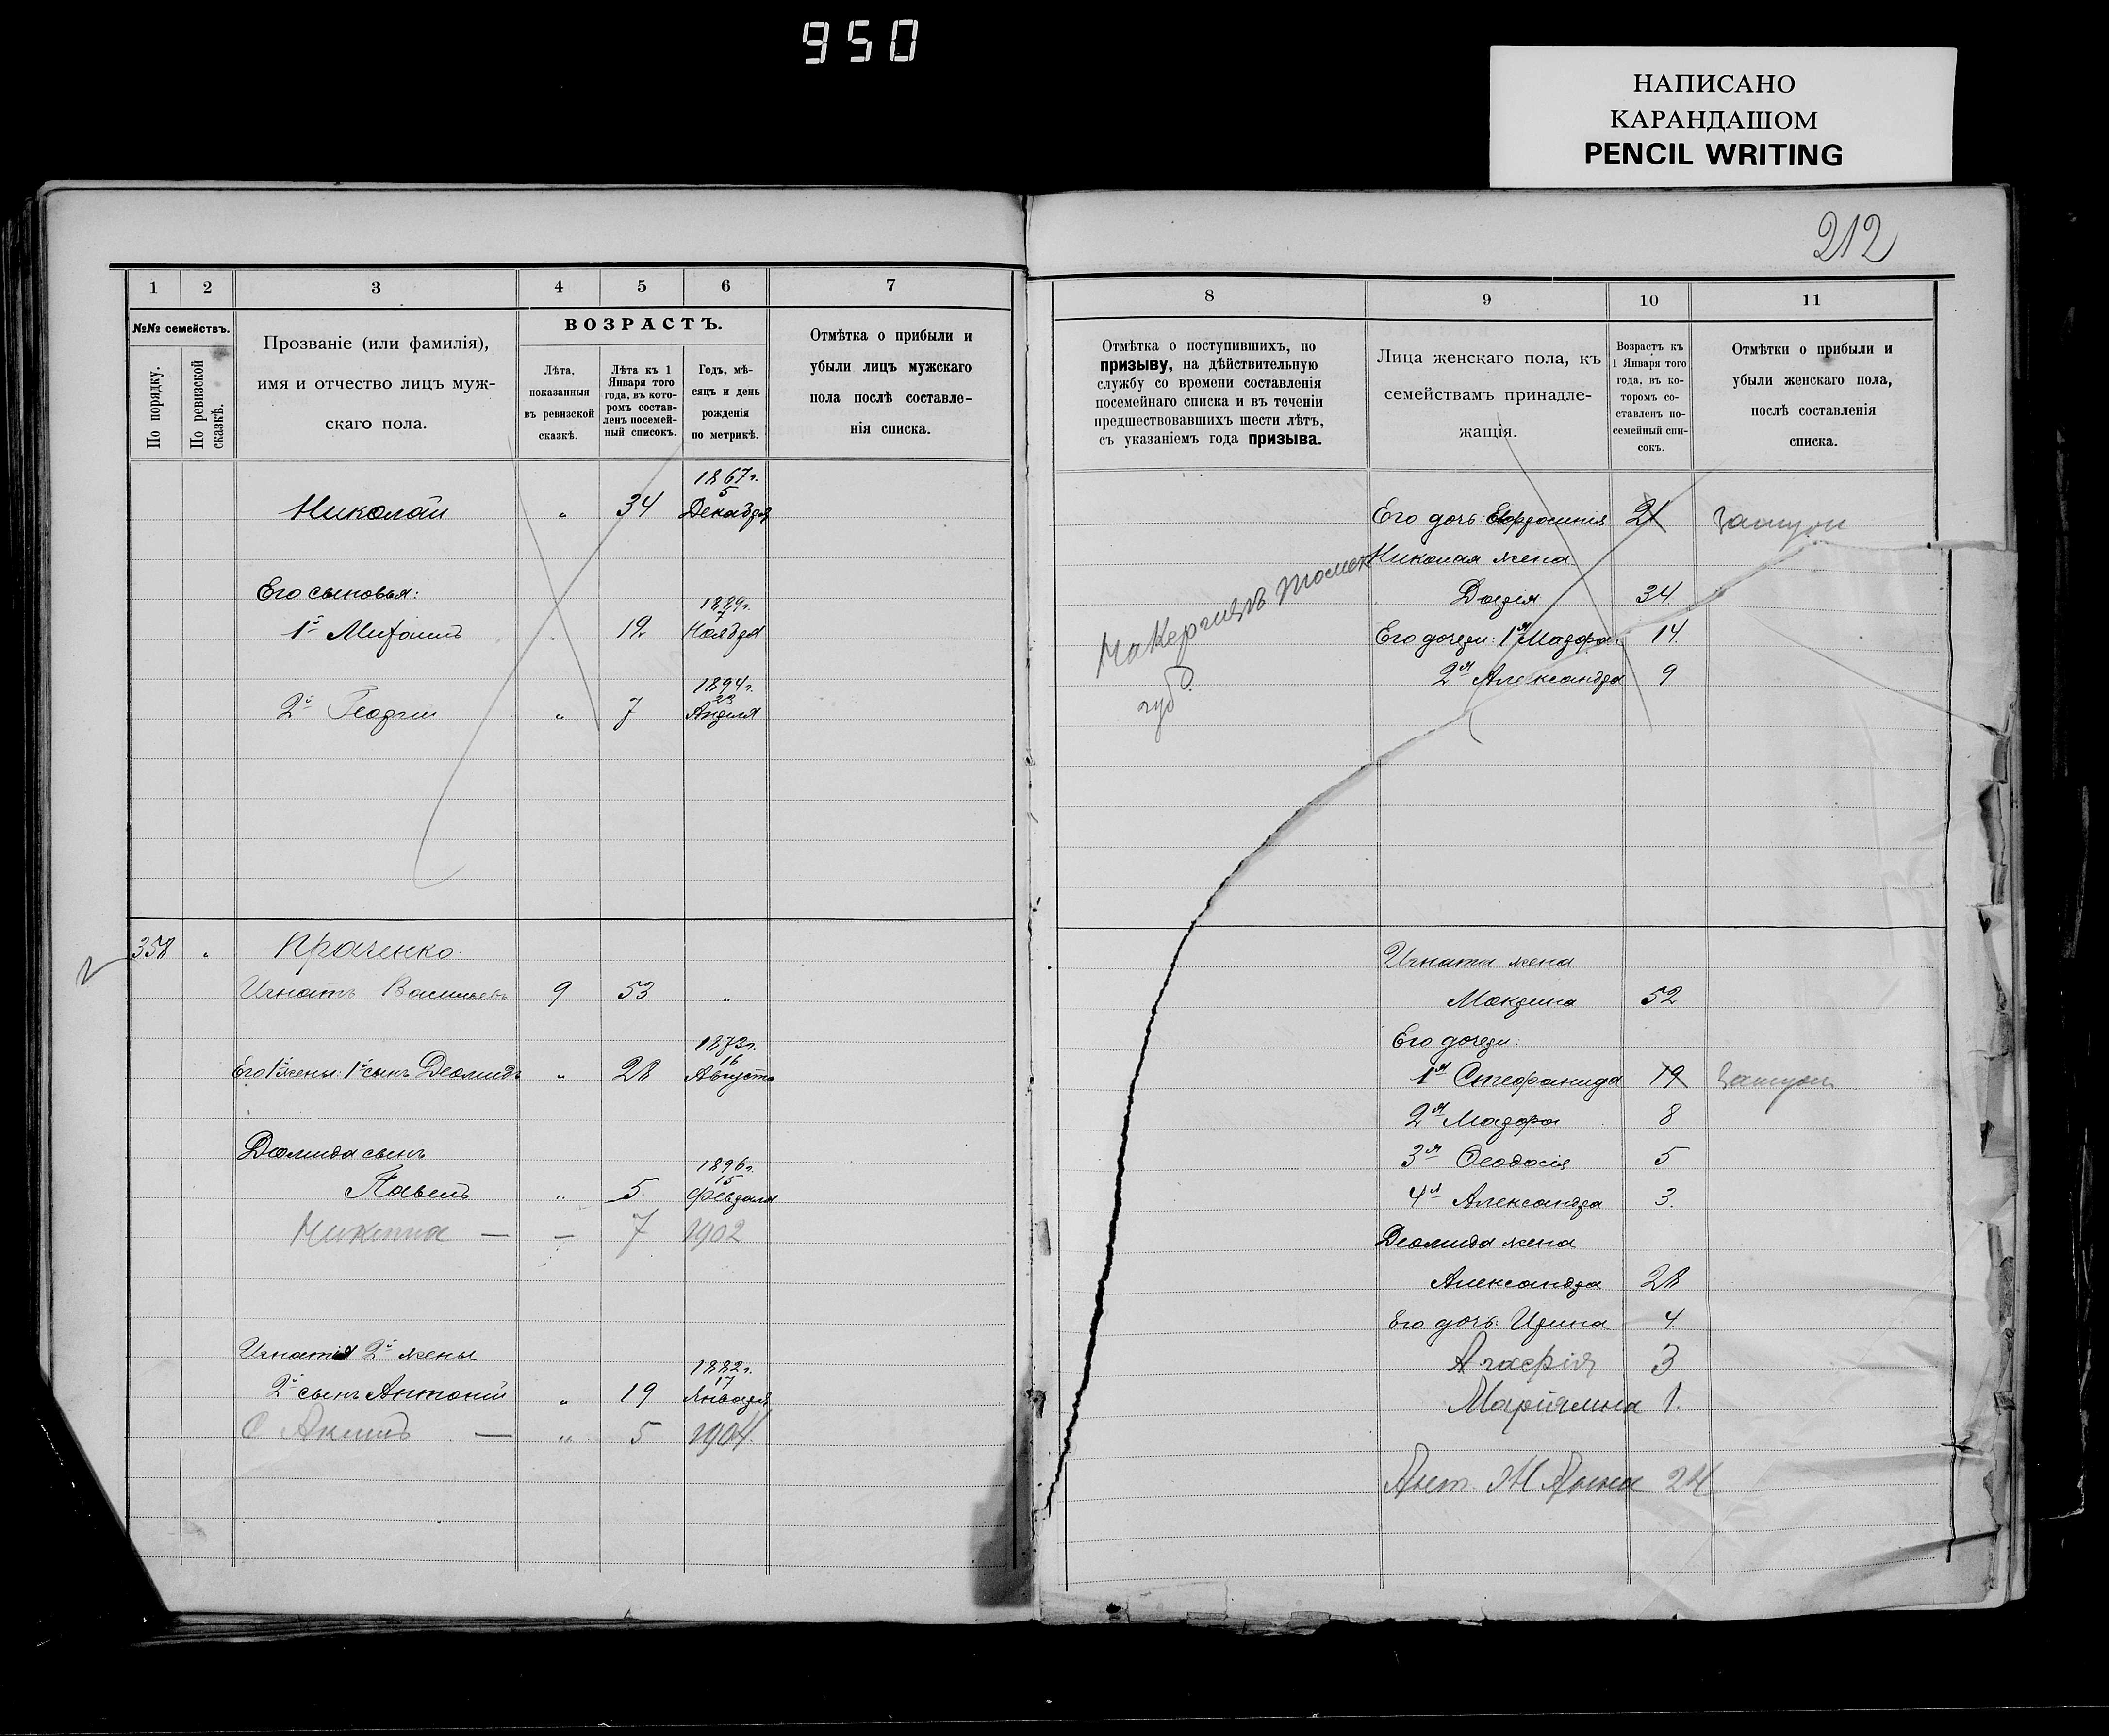 950
НАПИСАНО
КАРАНДАШОМ
PENCIL WRITING
212
1 2 3 4 5 6 7
№№ семействъ.
По порядку.
По ревизской сказкѣ.
Прозваніе (или фамилія),
имя и отчество лицъ муж-
скаго пола.
ВОЗРАСТЪ.
Лѣта,
показанныя
въ ревизской
сказкѣ.
Лѣта къ 1
Января того
года, въ кото-
ромъ состав-
ленъ посемей-
ный списокъ.
Годъ, мѣ-
сяцъ и день
рожденія
по метрикѣ.
Отмѣтка о прибыли и
убыли лицъ мужскаго
пола послѣ составле-
нія списка.
1867 г.
5
Николай " 34 Декабря
Его сыновья:
1889 г.
7
1й Митрофанъ 12 Ноября
1894 г.
23
2й Георгій " 7 Апреля
358 " Краченко
Игнатъ Васильевъ 9 53 "
1873 г.
16
Его 1й жены: 1й сынъ Деомидъ " 28 Августа
Деомида сынъ
1896 г.
15
Павелъ " 5 Февраля
Никита — — 7 1902
Игнатія 2й жены
1882 г.
17
2й сынъ Антоній " 19 Января
С Акимъ — " 5 1904.
8 9 10 11
Отмѣтка о поступившихъ, по
призыву, на дѣйствительную
службу со времени составленія
посемейнаго списка и въ теченіи
предшествовавшихъ шести лѣтъ,
съ указаніемъ года призыва.
Лица женскаго пола, къ
семействамъ принадле-
жащія.
Возрастъ къ
1 Января того
года, въ ко-
торомъ со-
ставленъ по-
семейный спи-
сокъ.
Отмѣтки о прибыли и
убыли женскаго пола,
послѣ составленія
списка.
Его дочь: Евфросинія 21 Замуж
Николая жена
Дарія 34
Его дочери: 1я Марфа 14.
2я Александра 9
Томск
губ.
Игната жена
Мокрина 52
Его дочери:
1я Стефанида 19 Замуж
2я Марфа 8
3я Феодосія 5
4я Александра 3.
Деомида жена
Александра 28
Его дочь: Ирина 4
Агафія 3
1.
Ант. Ж Анна 24